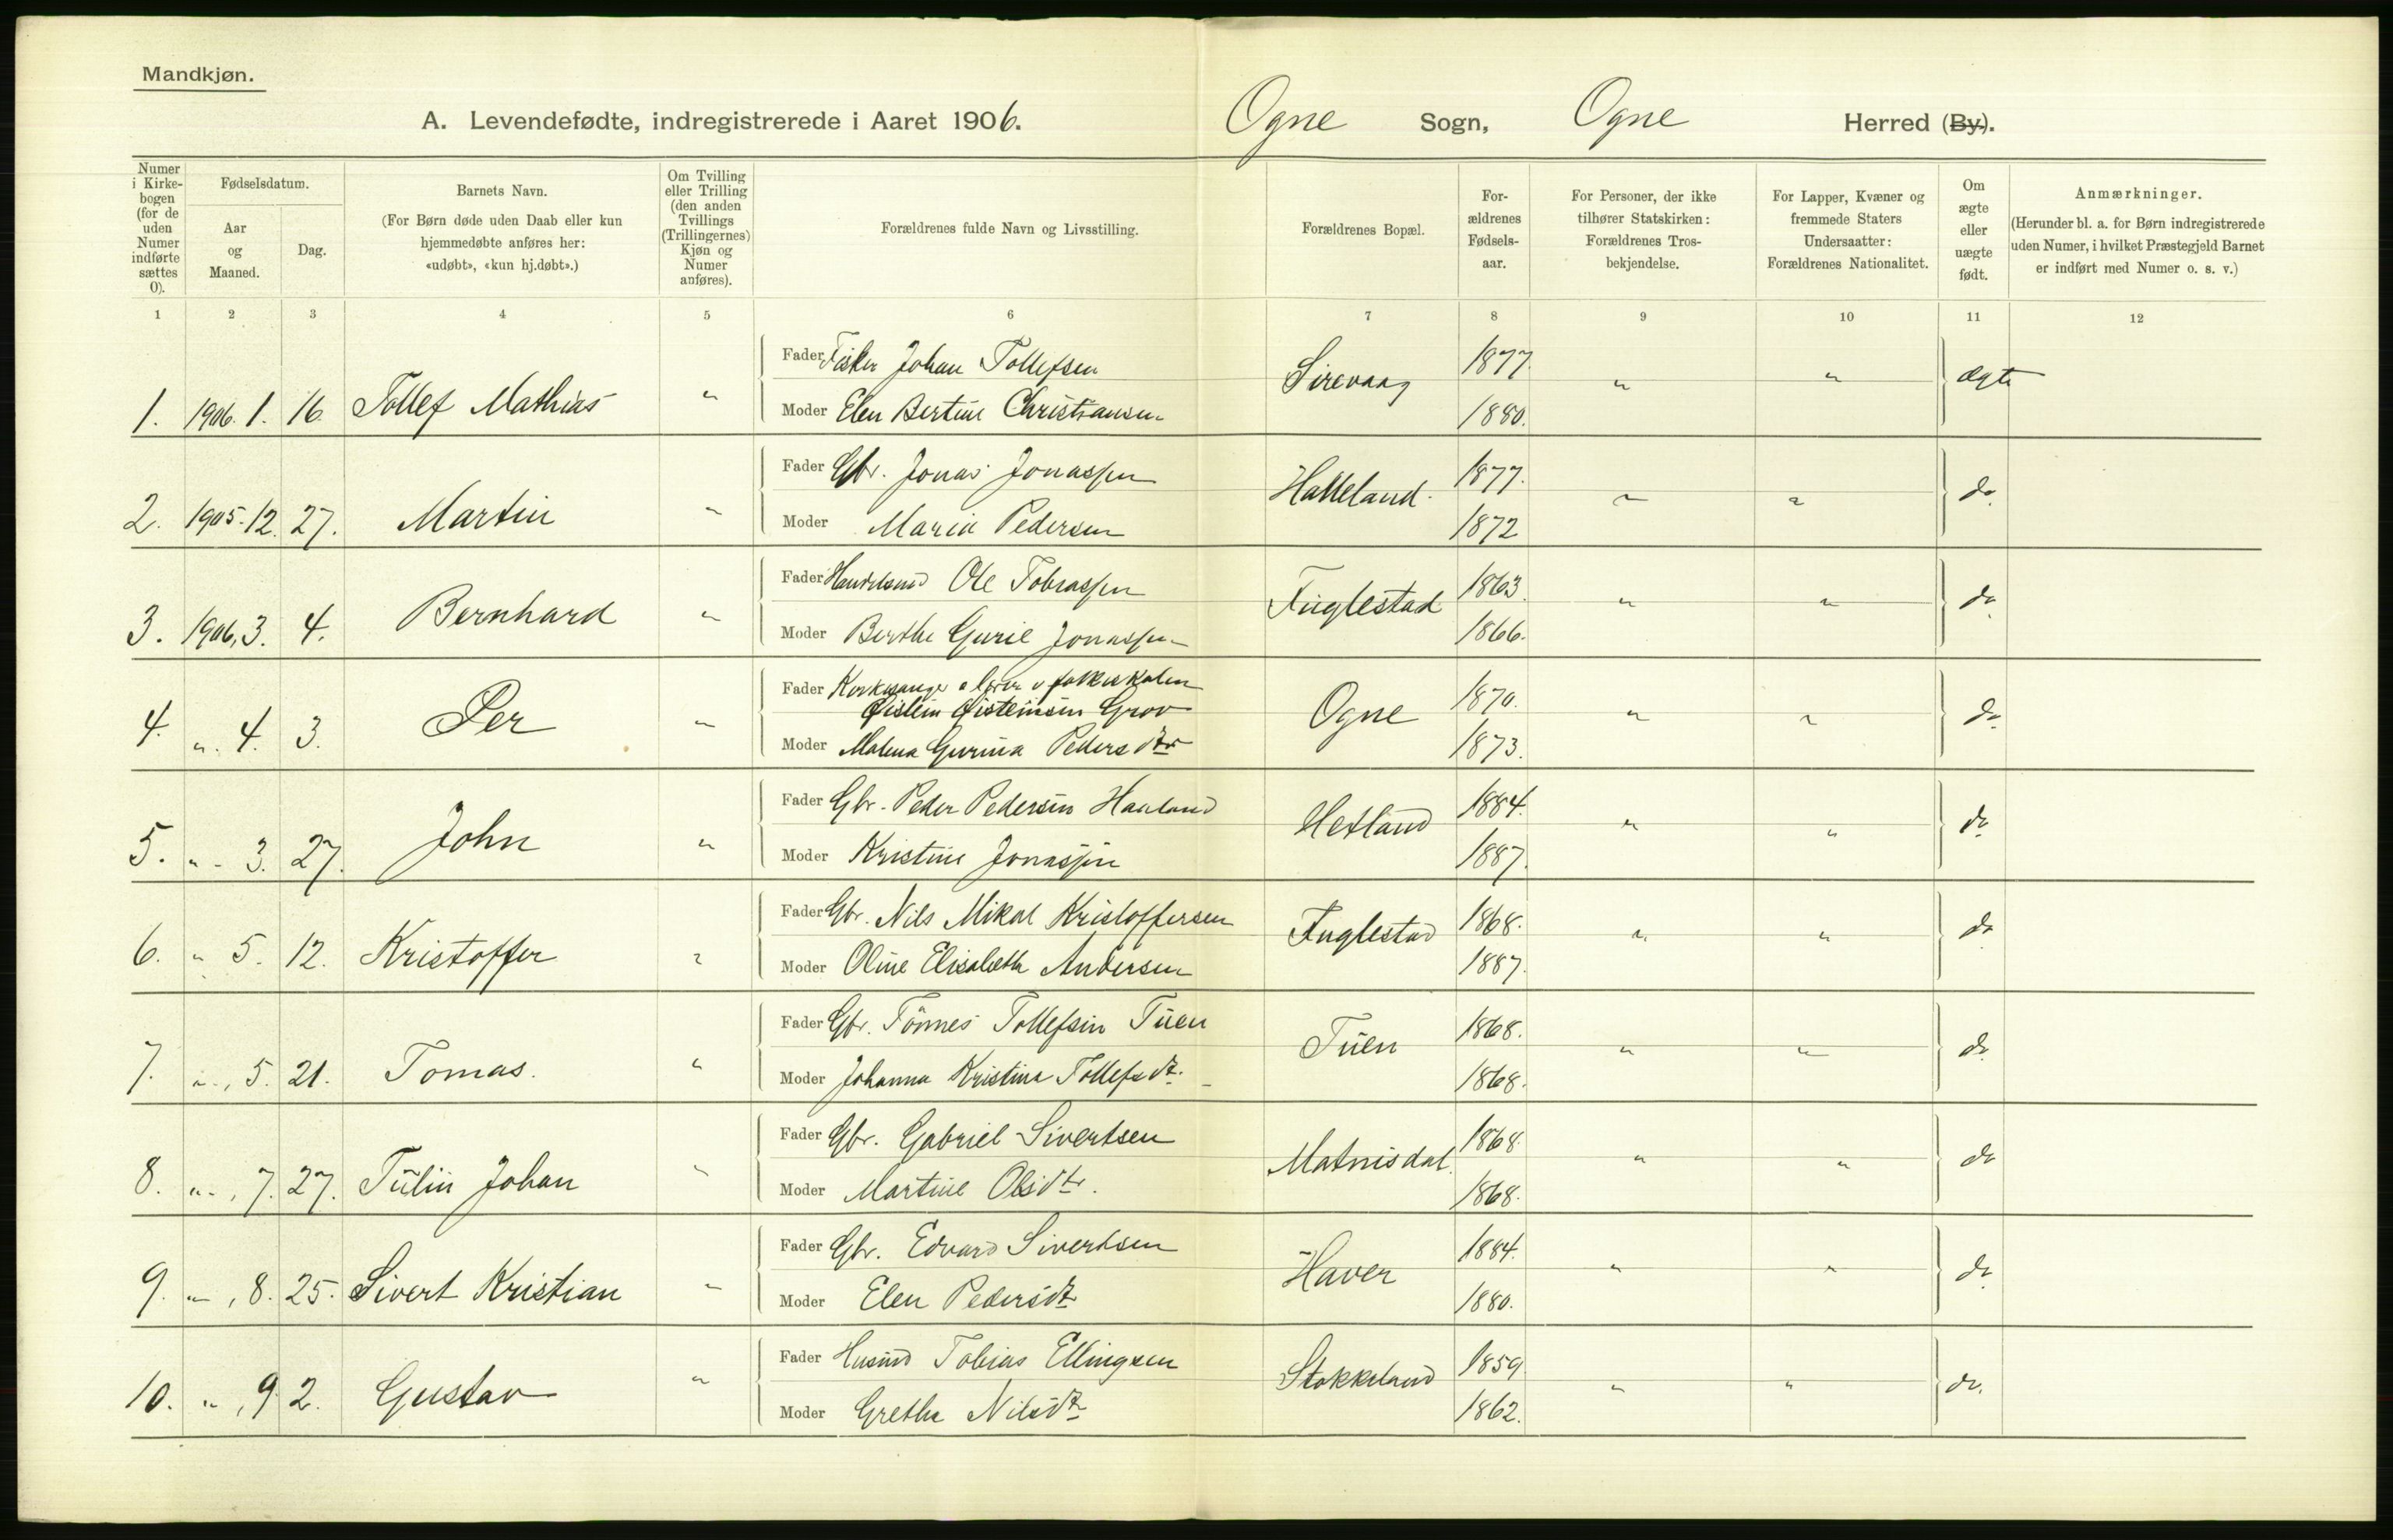 Mandkjøn.
A. Levendefødte, indregistrerede i Aaret 1906.
Ogne Sogn, Ogne Herred (By).
Numer i Kirkebogen (for de uden Numer indførte sættes 0).
Fødselsdatum.
Aar og Maaned.
Dag.
Barnets Navn.
(For Børn døde uden Daab eller kun hjemmedøbte anføres her: «udøbt», «kun hj.døbt».)
Om Tvilling eller Trilling (den anden Tvillings (Trillingernes) Kjøn og Numer anføres).
Forældrenes fulde Navn og Livsstilling.
Forældrenes Bopæl.
Forældrenes Fødselsaar.
For Personer, der ikke tilhører Statskirken: Forældrenes Trosbekjendelse.
For Lapper, Kvæner og fremmede Staters Undersaatter: Forældrenes Nationalitet.
Om ægte eller uægte født.
Anmærkninger.
(Herunder bl. a. for Børn indregistrerede uden Numer, i hvilket Præstegjeld Barnet er indført med Numer o. s. v.)
1 2 3 4 5 6 7 8 9 10 11 12
Fader Fisker Johan Tollefsen 1877.
1. 1906. 1. 16. Tollef Mathias " Sirevaag " " ægte
Moder Elen Bertine Christiansen 1880.
Fader Gbr. Jonas Jonassen 1877.
2. 1905. 12. 27. Martin " Halleland " " do
Moder Maria Pedersen 1872
Fader Handelsmd Ole Tobiassen 1863.
3. 1906, 3. 4. Bernhard " Fuglestad " " do
Moder Berthe Gurie Jonassen 1866.
Fader Kirkesanger o lærer v folkeskolen
Øistein Øisteinsen Grov 1870.
4. " 4. 3. Per " Ogne " " do
Moder Malena Gurina Pedersdtr 1873.
Fader Gbr. Peder Pedersen Haaland 1884.
5. " 3. 27. John " Hetland " " do
Moder Kristine Jonassen 1887.
Fader Gbr. Nils Mikal Kristoffersen 1868.
6. " 5. 12. Kristoffer " Fuglestad " " do
Moder Oline Elisabeth Andersen 1887.
Fader Gbr. Tönnes Tollefsen Tuen 1868.
7. " , 5. 21. Tomas. " Tuen " " do
Moder Johanna Kristina Tollefsdt. 1868.
Fader Gbr. Gabriel Sivertsen 1868.
8. " , 7. 27. Tulin Johan " Matnisdal. " " do
Moder Martine Olsdtr. 1868.
Fader Gbr. Edvard Sivertsen 1884.
9. " , 8. 25. Sivert Kristian " Haver " " do
Moder Elen Pedersdt 1880.
Fader Husmd Tobias Ellingsen 1859
10. " , 9 2. Gustav " Stokkeland " " do.
Moder Grethe Nilsdt 1862.